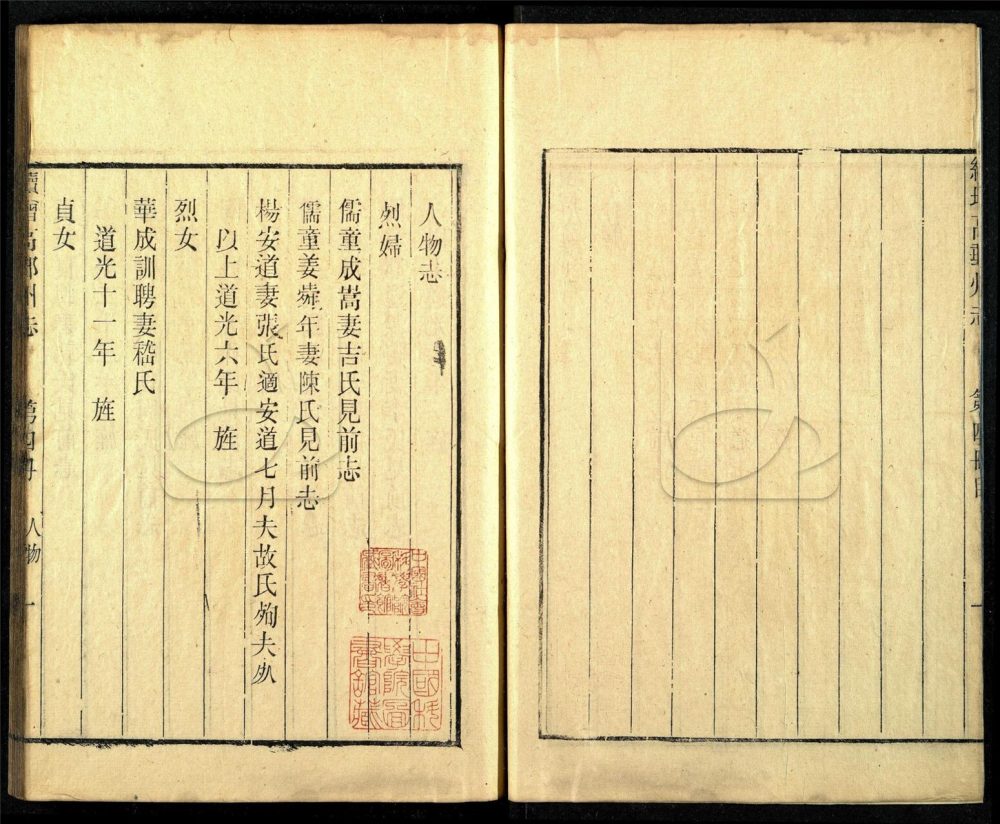 人物志
烈婦
儒童成嵩妻吉氏見前志
儒童姜舜年妻陳氏見前志
楊安道妻張氏適安道七月夫故氏殉夫㱙
以上道光六年　旌
烈女
華成訓聘妻嵇氏
道光十一年　旌
貞女
續增高郵州志　第四冊　人物　一
中國科
學院圖
書館藏